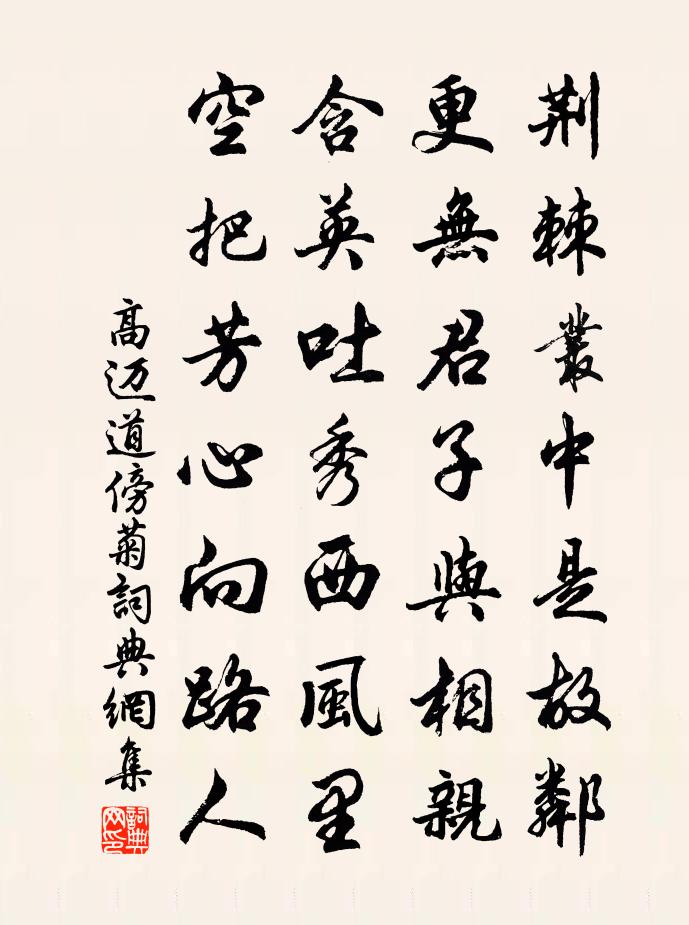 荆棘叢中是故鄰
更無君子與相親
含英吐秀西風里
空把芳心向路人
高迈道傍菊詞典網集
詞典網印